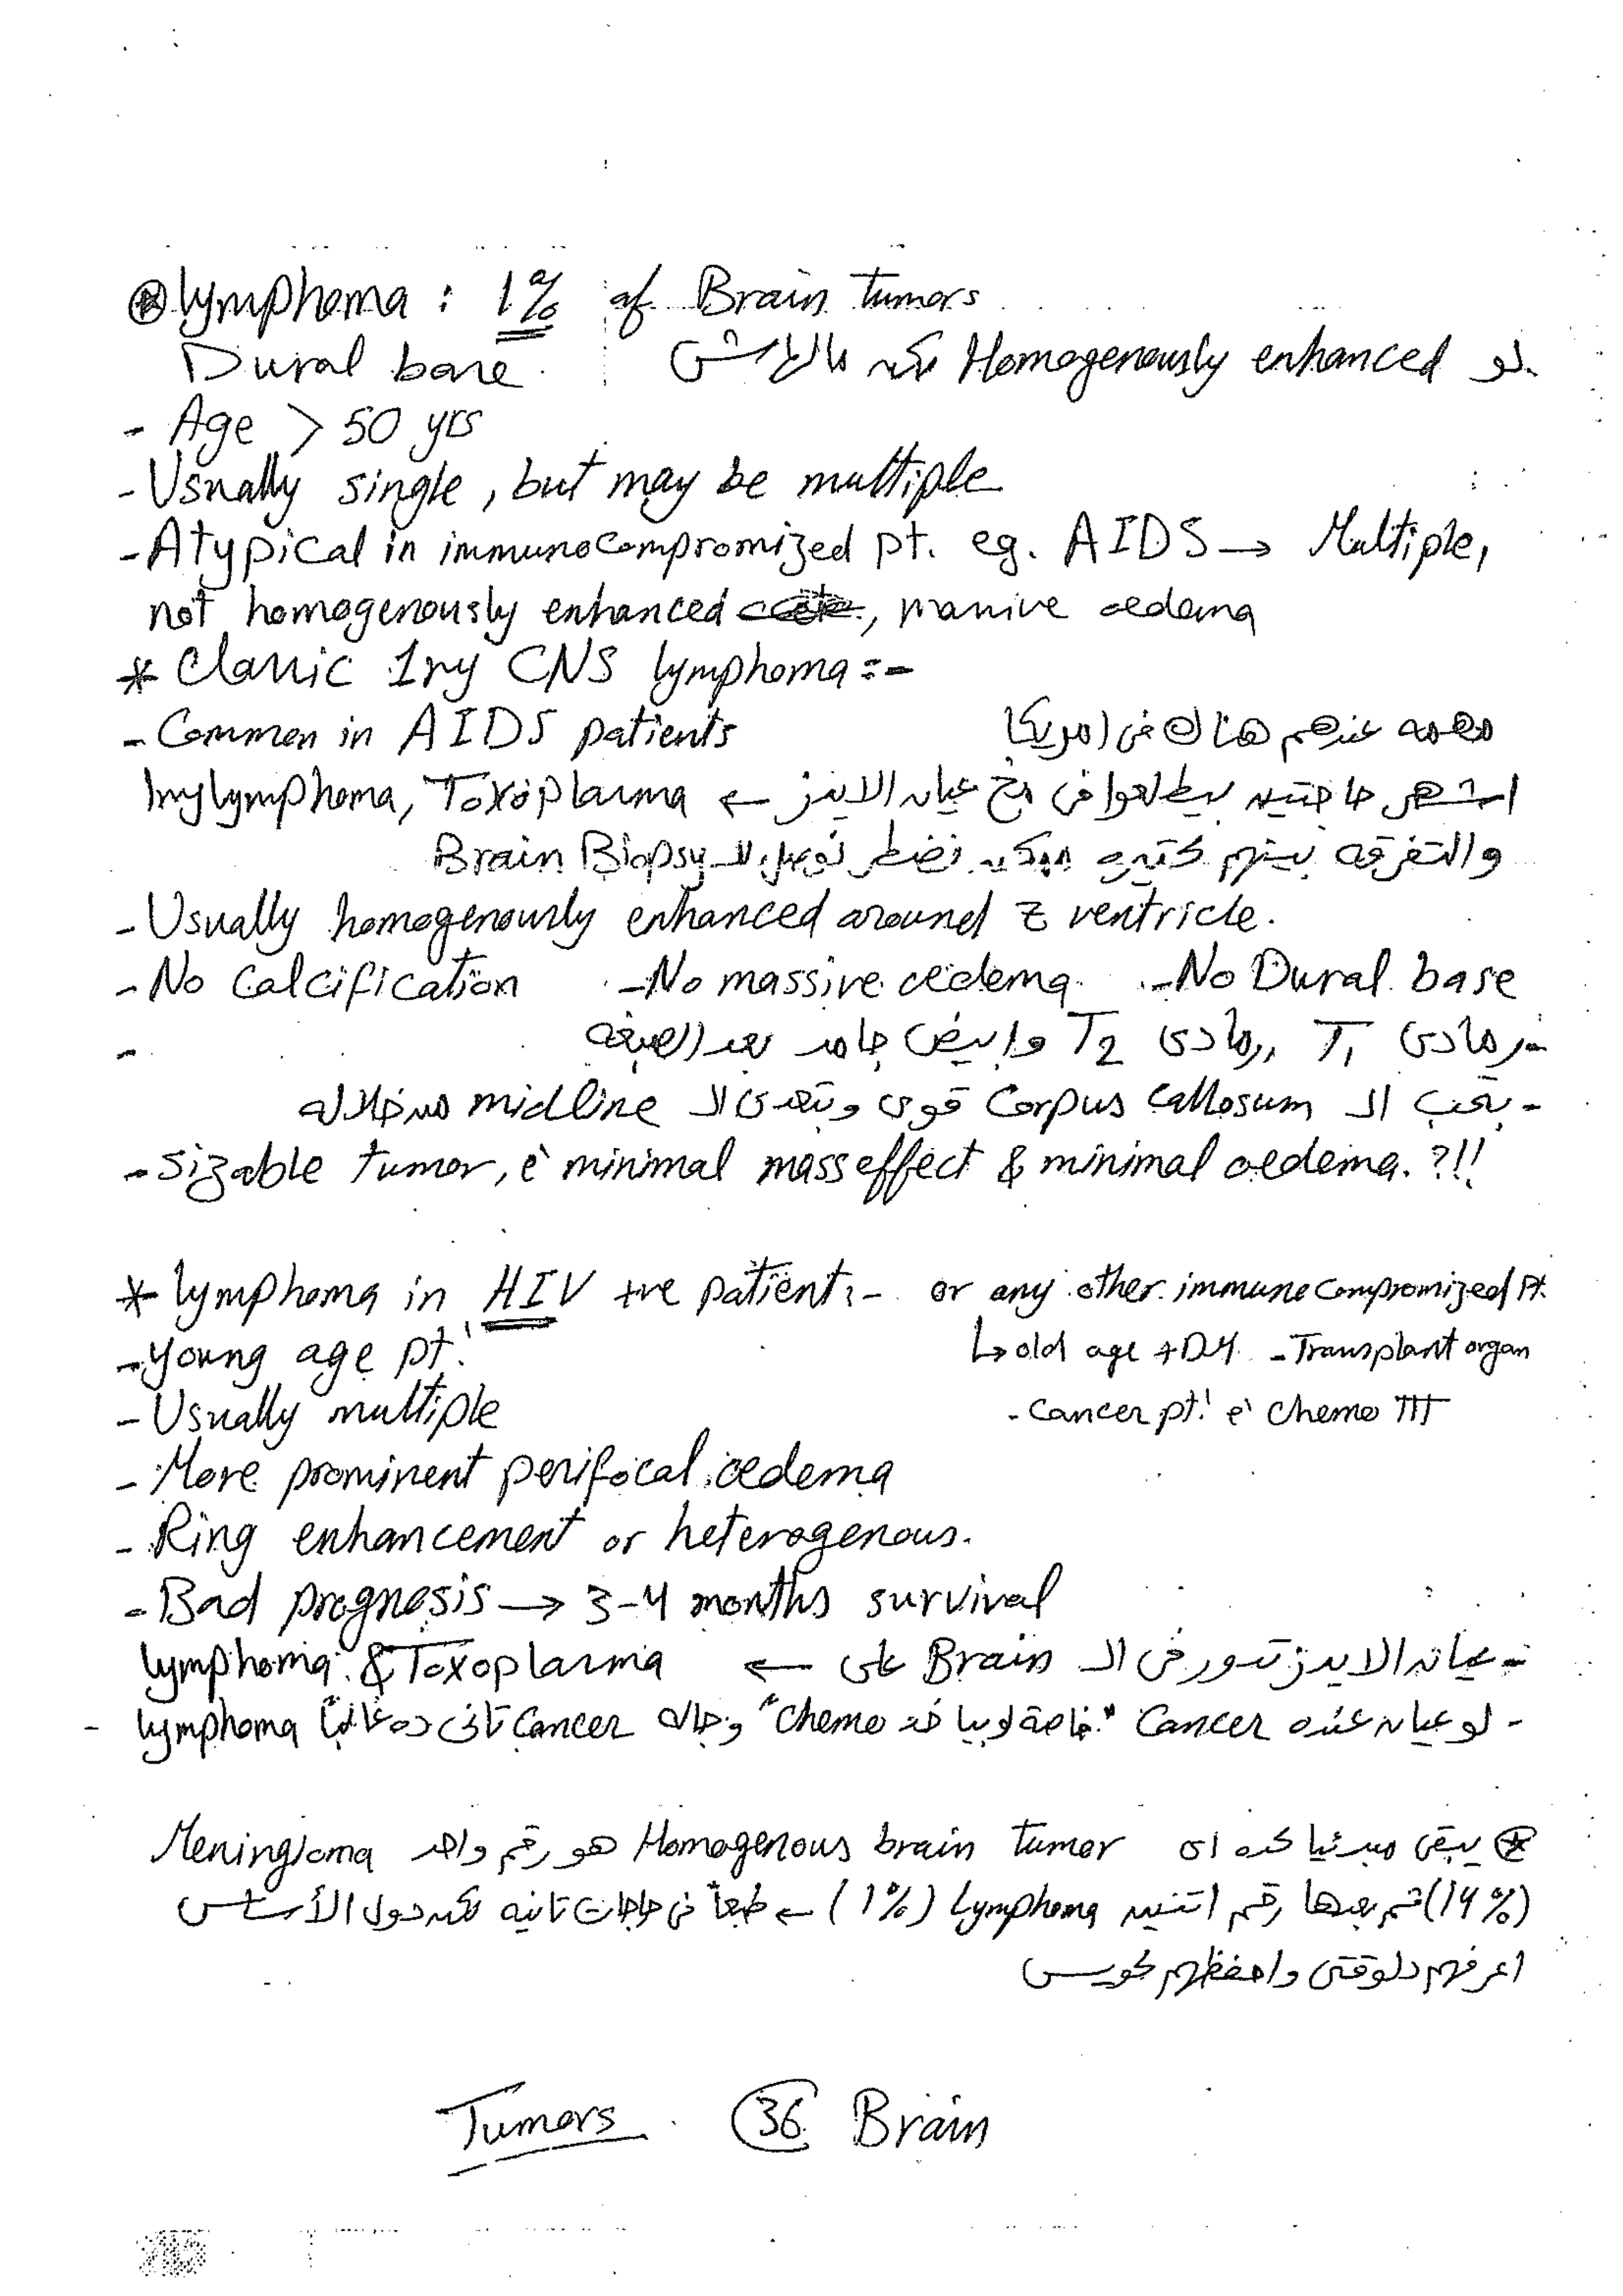 ⊛ lymphoma : 1% of Brain tumors
لو Homogenously enhanced لكن مالهاش Dural base
- Age > 50 yrs
- Usually single, but may be multiple
- Atypical in immunocompromized pt. eg. AIDS → Multiple,
not homogenously enhanced, massive oedema
* Classic 1ry CNS lymphoma :-
- Common in AIDS patients مهمه عندهم هناك فى امريكا
اشهر حاجتين بيطلعوا فى مخ عيان الايدز ← 1ry lymphoma, Toxoplasma
والتفرقه بينهم كتيره ممكن نضطر نوصل للـ Brain Biopsy
- Usually homogenously enhanced around z ventricle.
- No Calcification - No massive oedema. - No Dural base
- رمادى T1 رمادى T2 وابيض جامد بعد الصبغه
- بتحب الـ Corpus callosum قوى وتعدى الـ midline من خلاله
- sizable tumor, c̄ minimal mass effect & minimal oedema. ?!!
* lymphoma in HIV +ve patient :- or any other immunecompromized pt.
- young age pt. ↳ old age + DM - Transplant organ
- Usually multiple - Cancer pt. c̄ chemo TTT
- More prominent perifocal oedema
- Ring enhancement or heterogenous.
- Bad prognosis → 3-4 months survival
- عيان الايدز تدور فى الـ Brain على ← lymphoma & Toxoplasma
- لو عيان عنده Cancer "خاصة لو بياخد chemo" وجاله Cancer تانى ده غالباً lymphoma
⊛ يبقى مبدئيا كده اى Homogenous brain tumor هو رقم واحد Meningioma
(14%) ثم بعدها رقم اتنين Lymphoma (1%) ← طبعاً فى حاجات تانيه لكن دول الأساس
اعرفهم دلوقتى واحفظهم كويس
Tumors 36 Brain